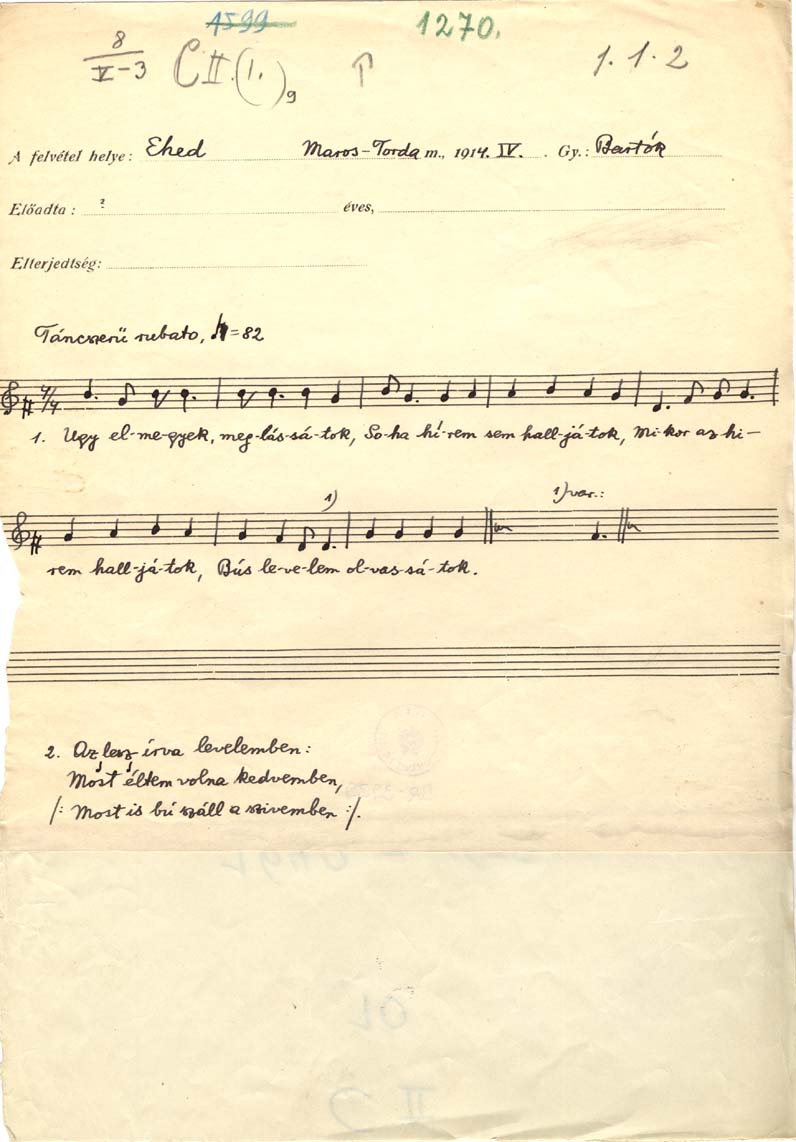 1599
1270.
8
V-3 C II. (1.)9 1. 1. 2
A felvétel helye: Ehed Maros-Torda m., 1914. IV. Gy.: Bartók
Előadta: ? éves,
Elterjedtség:
Táncszerű rubato, ♩=82
4/4
1. Ugy el-me-gyek, meg-lás-sá-tok, So-ha hí-rem sem hall-já-tok, Mi-kor az hi-
1) 1) var.:
rem hall-já-tok, Bús le-ve-lem ol-vas-sá-tok.
2. Az lesz írva levelemben:
Most éltem volna kedvemben,
/: Most is bú száll a szivemben :/.